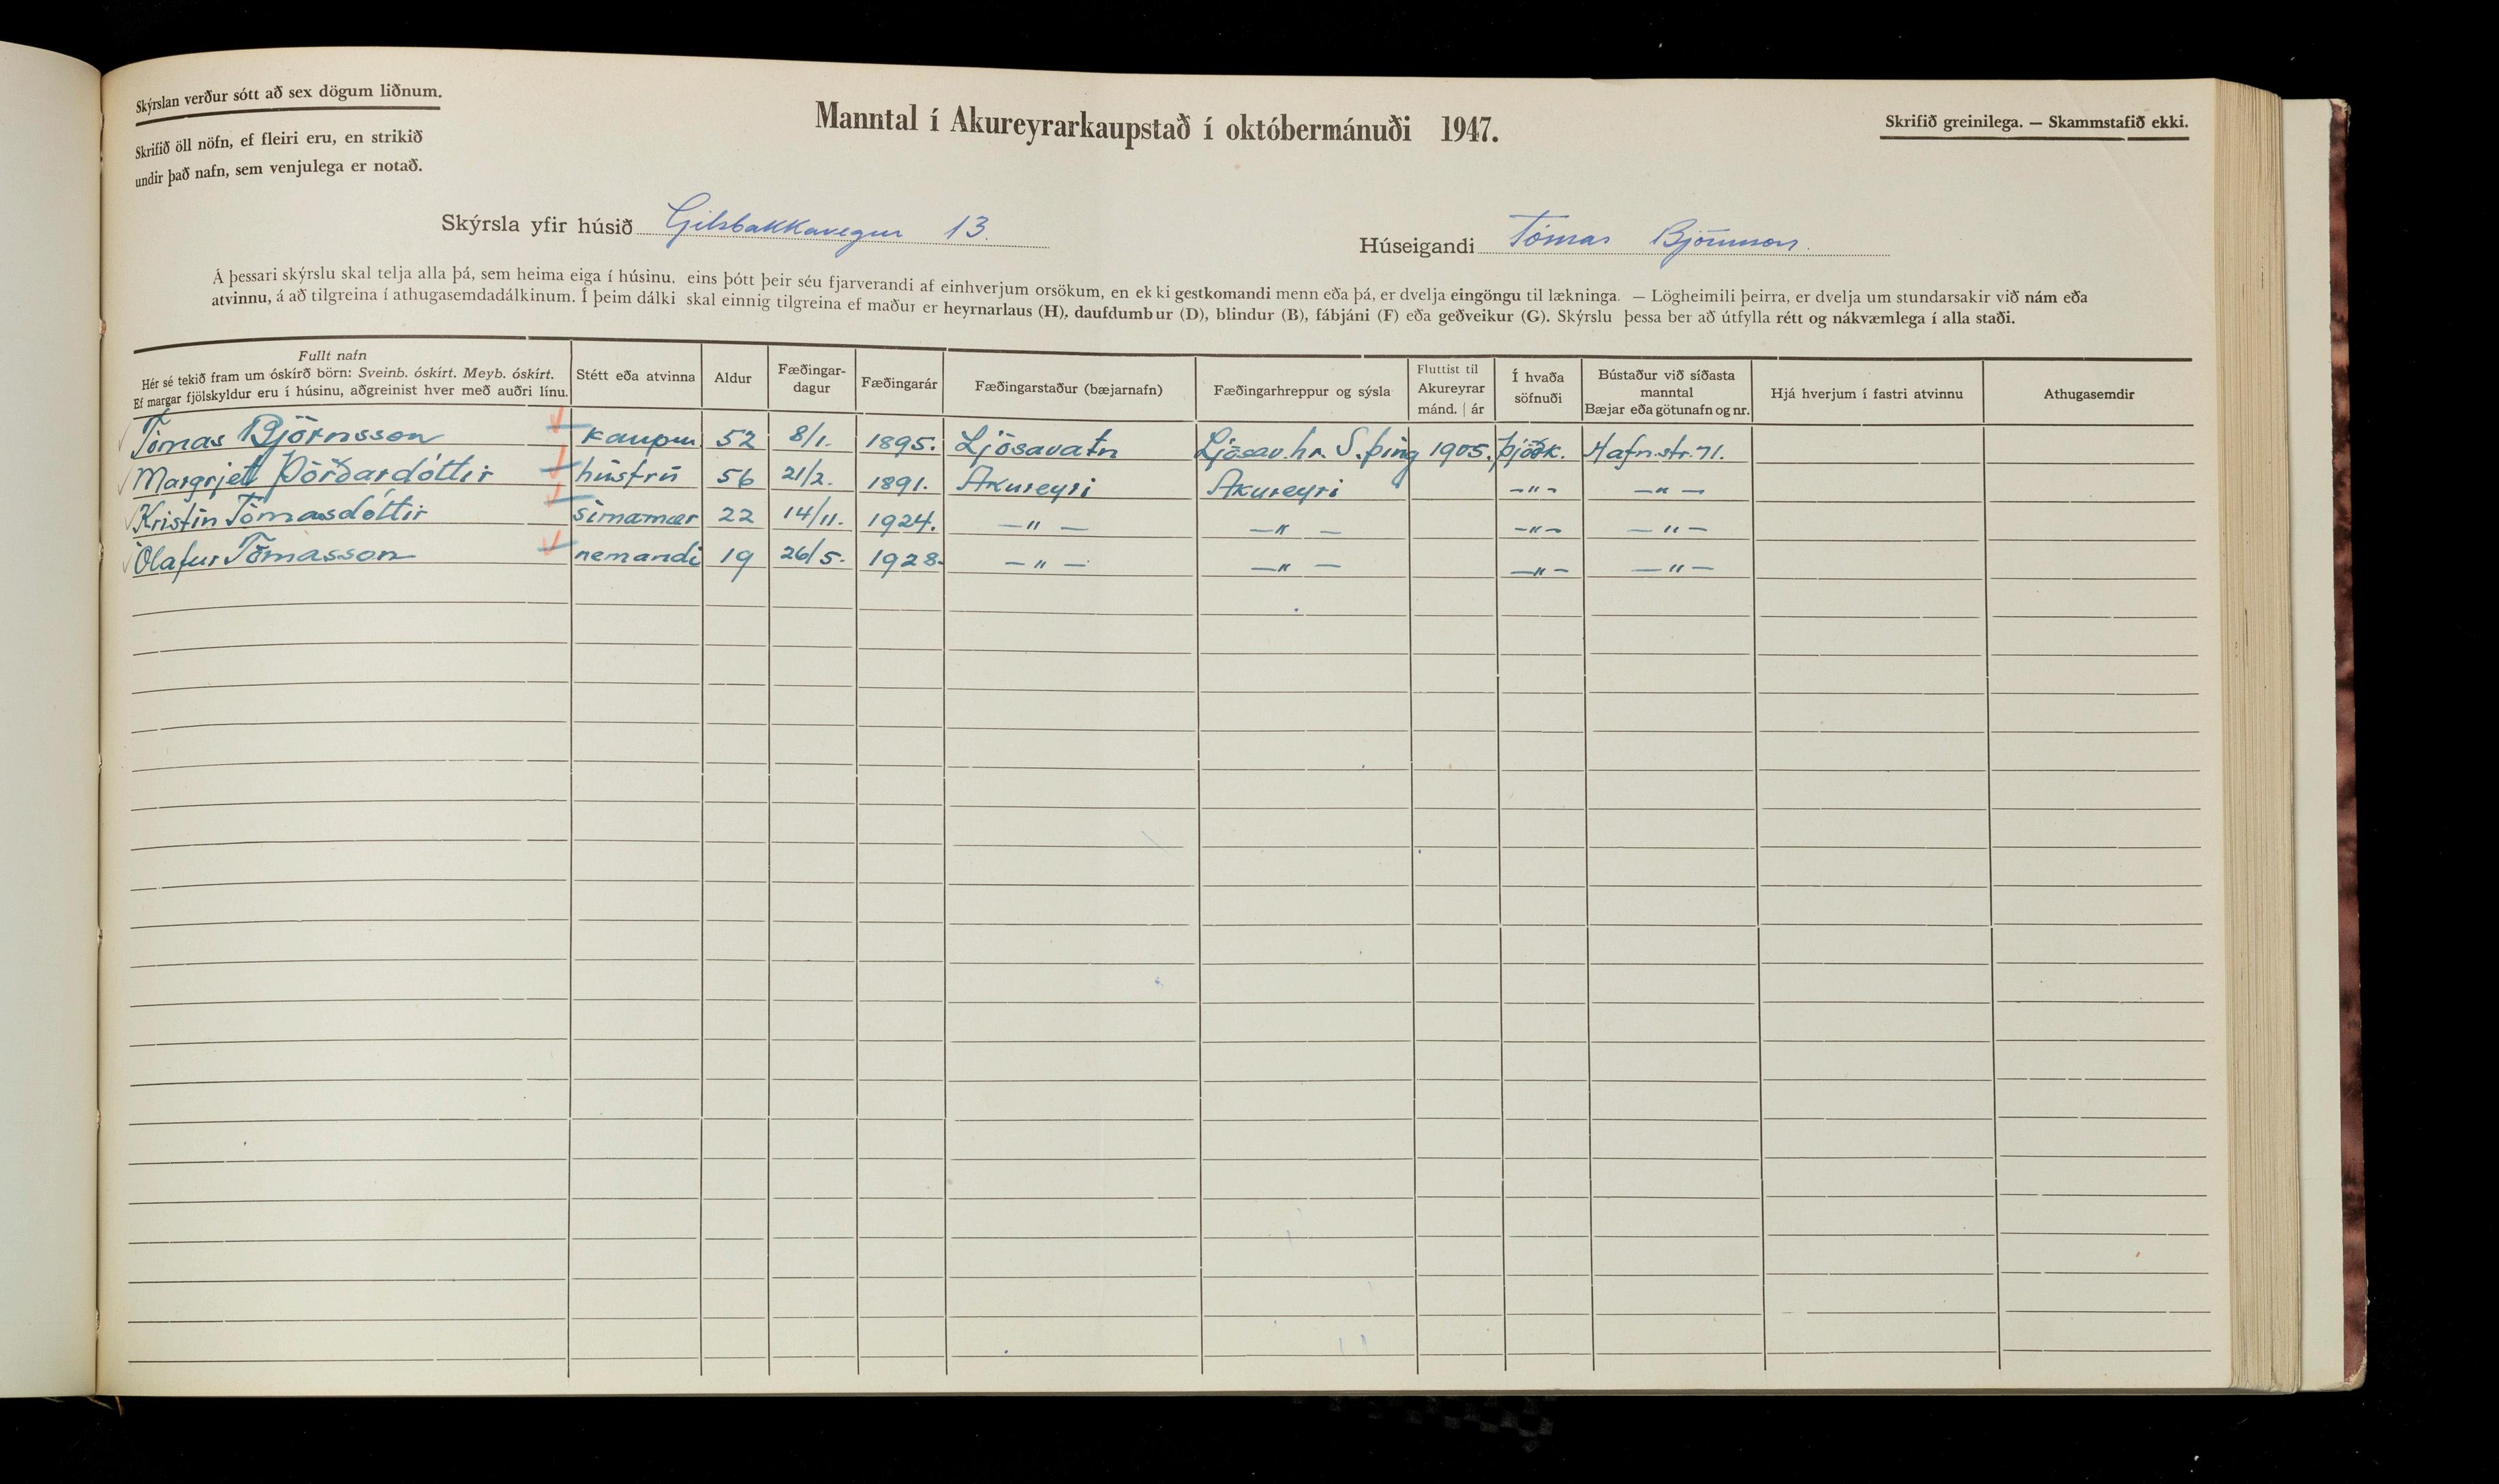 Skýrslan verður sótt að sex dögum liðnum.
Skrifið öll nöfn, ef fleiri eru, en strikið
undir það nafn, sem venjulega er notað.
Manntal í Akureyrarkaupstað í októbermánuði 1947.
Skrifið greinilega. — Skammstafið ekki.
Skýrsla yfir húsið Gilsbakkavegur 13.
Húseigandi Tómas Björnsson.
Á þessari skýrslu skal telja alla þá, sem heima eiga í húsinu, eins þótt þeir séu fjarverandi af einhverjum orsökum, en ekki gestkomandi menn eða þá, er dvelja eingöngu til lækninga. — Lögheimili þeirra, er dvelja um stundarsakir við nám eða
atvinnu, á að tilgreina í athugasemdadálkinum. Í þeim dálki skal einnig tilgreina ef maður er heyrnarlaus (H), daufdumbur (D), blindur (B), fábjáni (F) eða geðveikur (G). Skýrslu þessa ber að útfylla rétt og nákvæmlega í alla staði.
Fullt nafn
Hér sé tekið fram um óskírð börn: Sveinb. óskírt. Meyb. óskírt.
Ef margar fjölskyldur eru í húsinu, aðgreinist hver með auðri línu.
Stétt eða atvinna
Aldur
Fæðingar-
dagur
Fæðingarár
Fæðingarstaður (bæjarnafn)
Fæðingarhreppur og sýsla
Fluttist til
Akureyrar
mánd. | ár
Í hvaða
söfnuði
Bústaður við síðasta
manntal
Bæjar eða götunafn og nr.
Hjá hverjum í fastri atvinnu
Athugasemdir
Tómas Björnsson kaupm. 52 8/1. 1895. Ljósavatn Ljósav.hr. S.þing 1905. þjóðk. Hafn.str. 71.
Margrjet Þórðardóttir hústrú 56 21/2. 1891. Akureyri Akureyri —"— —"—
Kristín Tómasdóttir símamær 22 14/11. 1924. —"— —"— —"— —"—
Ólafur Tómasson nemandi 19 26/5. 1928. —"— —"— —"— —"—